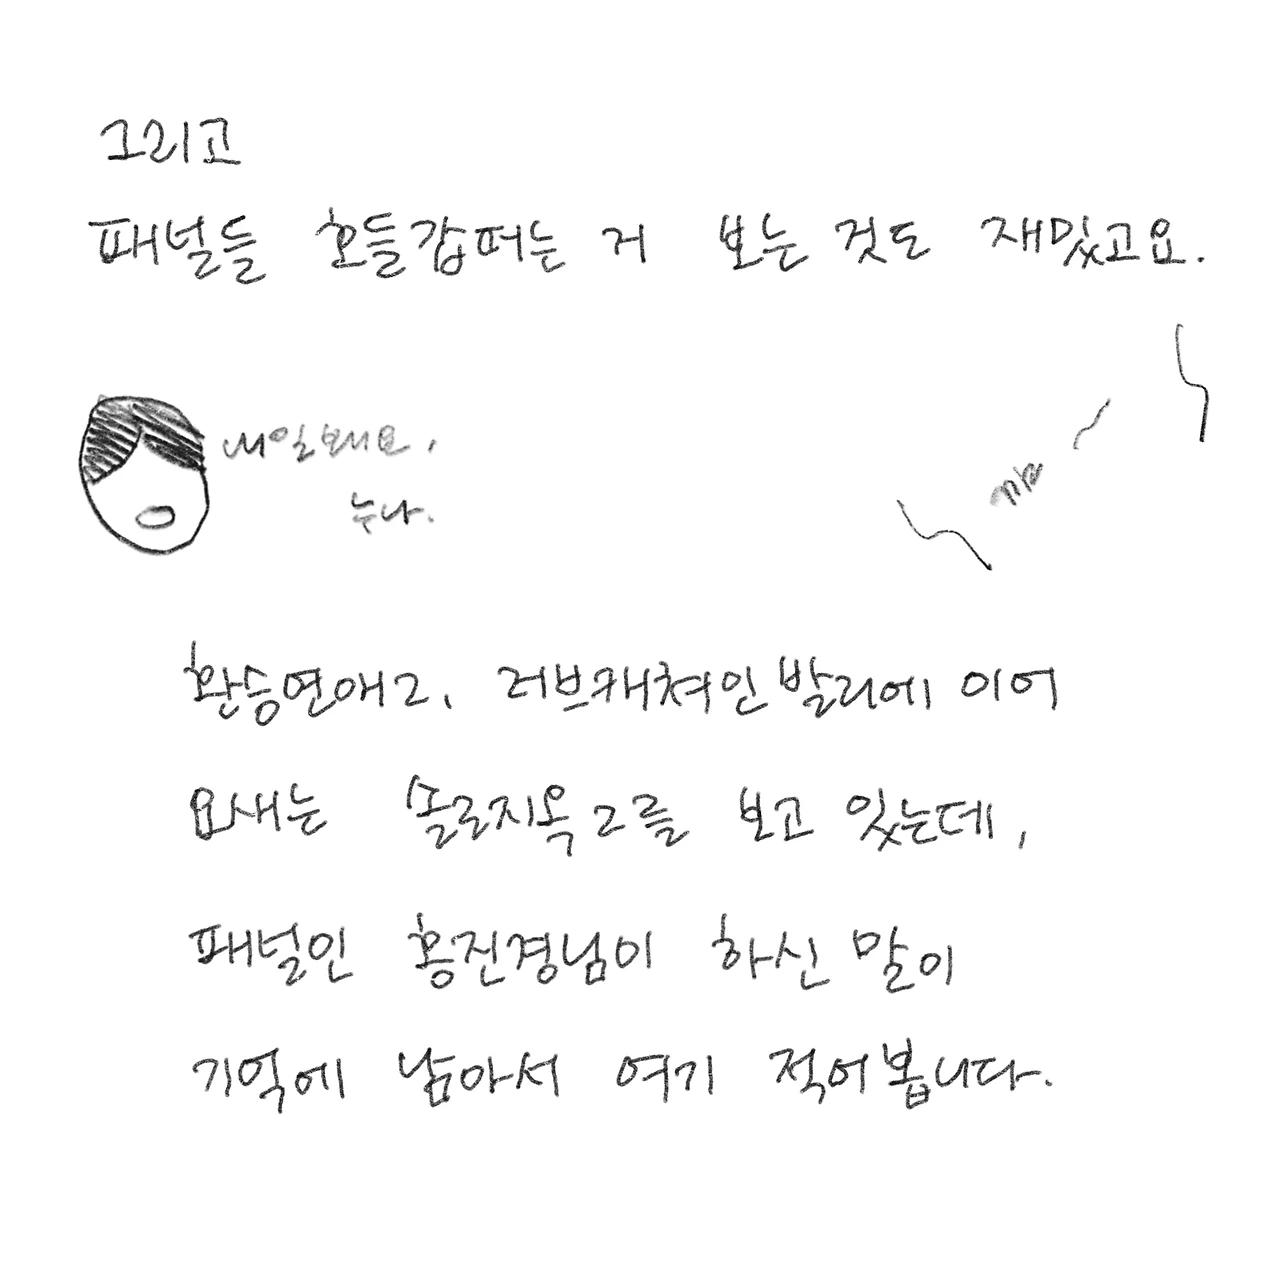 그리고
패널들 호들갑떠는 거 보는 것도 재밌고요.
내일봬요,
누나.
꺄
환승연애2, 러브캐쳐인발리에 이어
요새는 솔로지옥2를 보고 있는데,
패널인 홍진경님이 하신 말이
기억에 남아서 여기 적어봅니다.